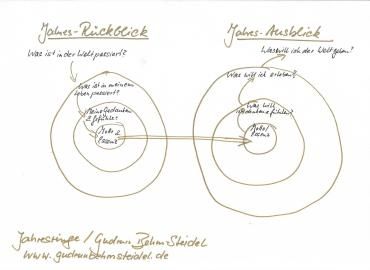 Jahres-Rückblick
Was ist in der Welt passiert?
Was ist in meinem
Leben passiert?
Meine Gedanken
& Gefühle?
Motto &
Essenz
Jahres-Ausblick
Was will ich der Welt geben?
Was will ich erleben?
Was will
denken & fühlen?
Motto/
Essenz
Jahresringe / Gudrun Behm-Steidel
www.gudrunbehmsteidel.de